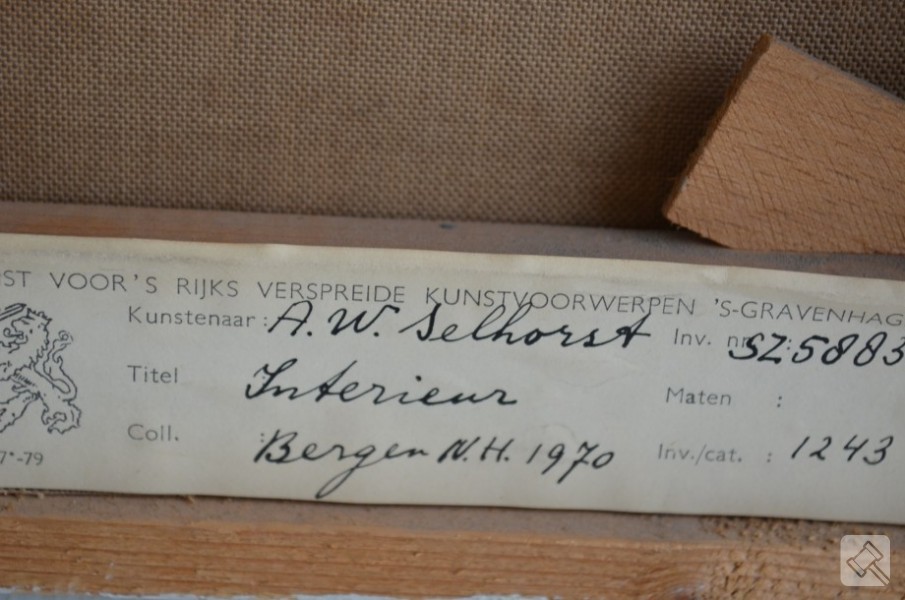 NST VOOR'S RIJKS VERSPREIDE KUNSTVOORWERPEN 'S-GRAVENHAG
Kunstenaar : A. W. Selhorst Inv. nr. : SZ.5883
Titel Interieur Maten :
Coll. : Bergen N.H. 1970 Inv./cat. : 1243
7*-79